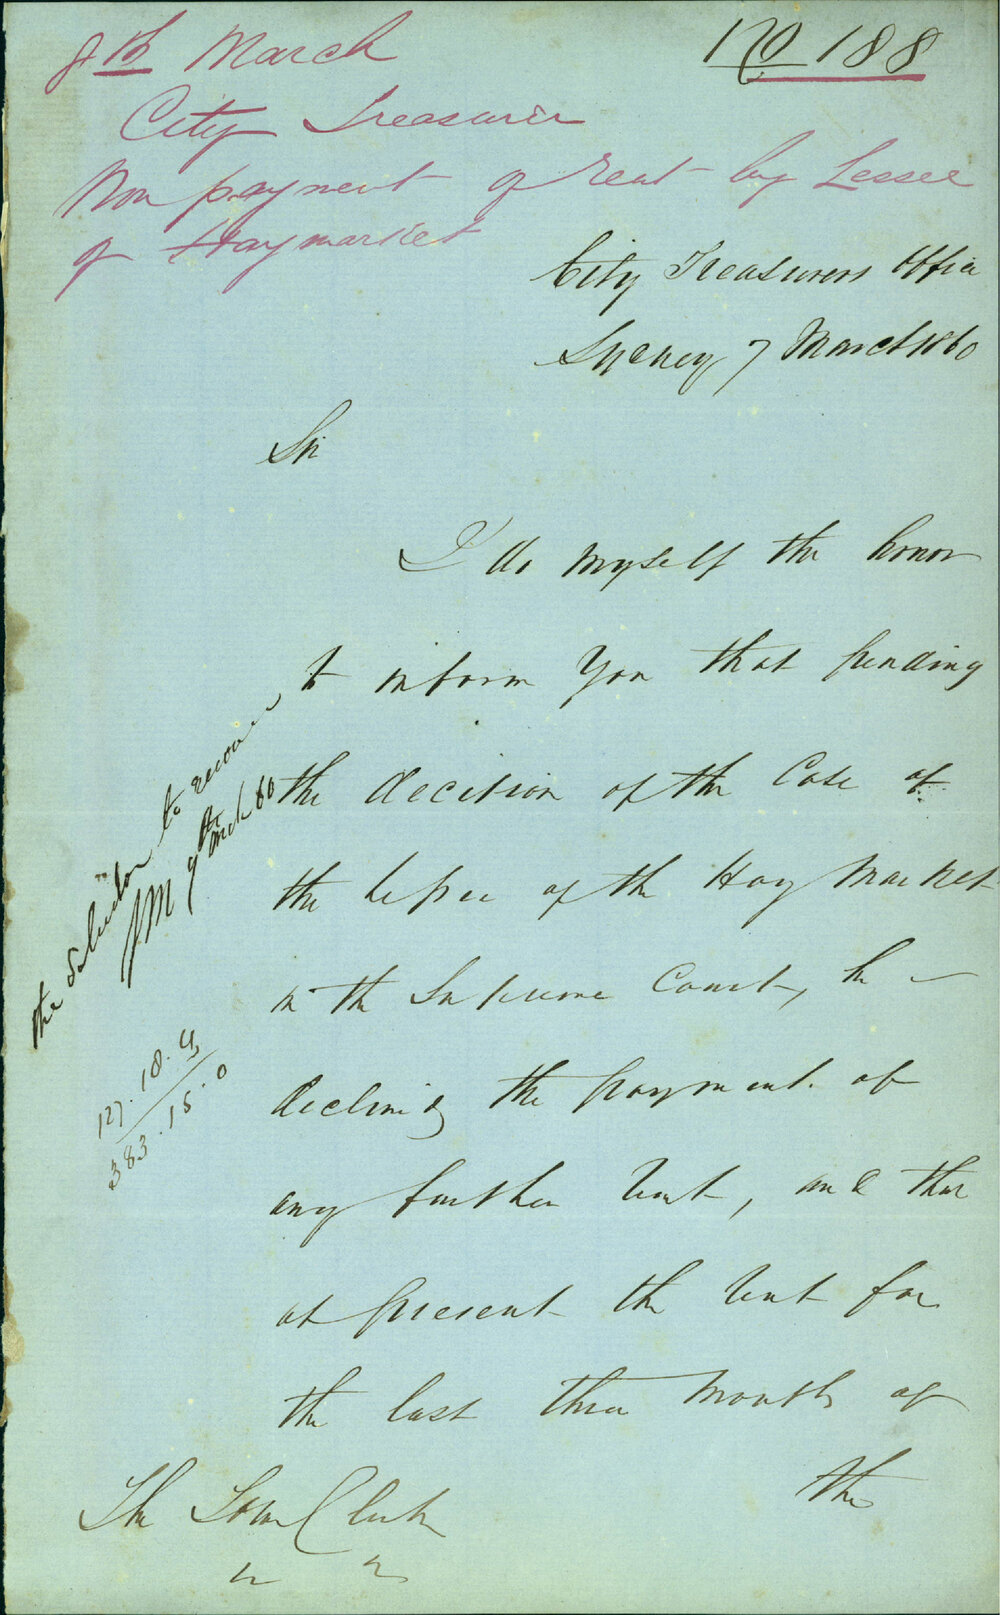 8th March
No 188
City Treasurer
Non payment of rent by Lessee
of Haymarket
City Treasurers Office
Sydney 7 March 1860
Sir
I do myself the honor
to inform You that pending
the decision of the Case of
the Lessee of the Hay Market
in the Supreme Court, he
declines the payment of
any further Rent, and that
at present the Rent for
the last three Months of
the
The Town Clerk
The Solicitor to recover
JM 9th March 60
127.18.4
383.15.0